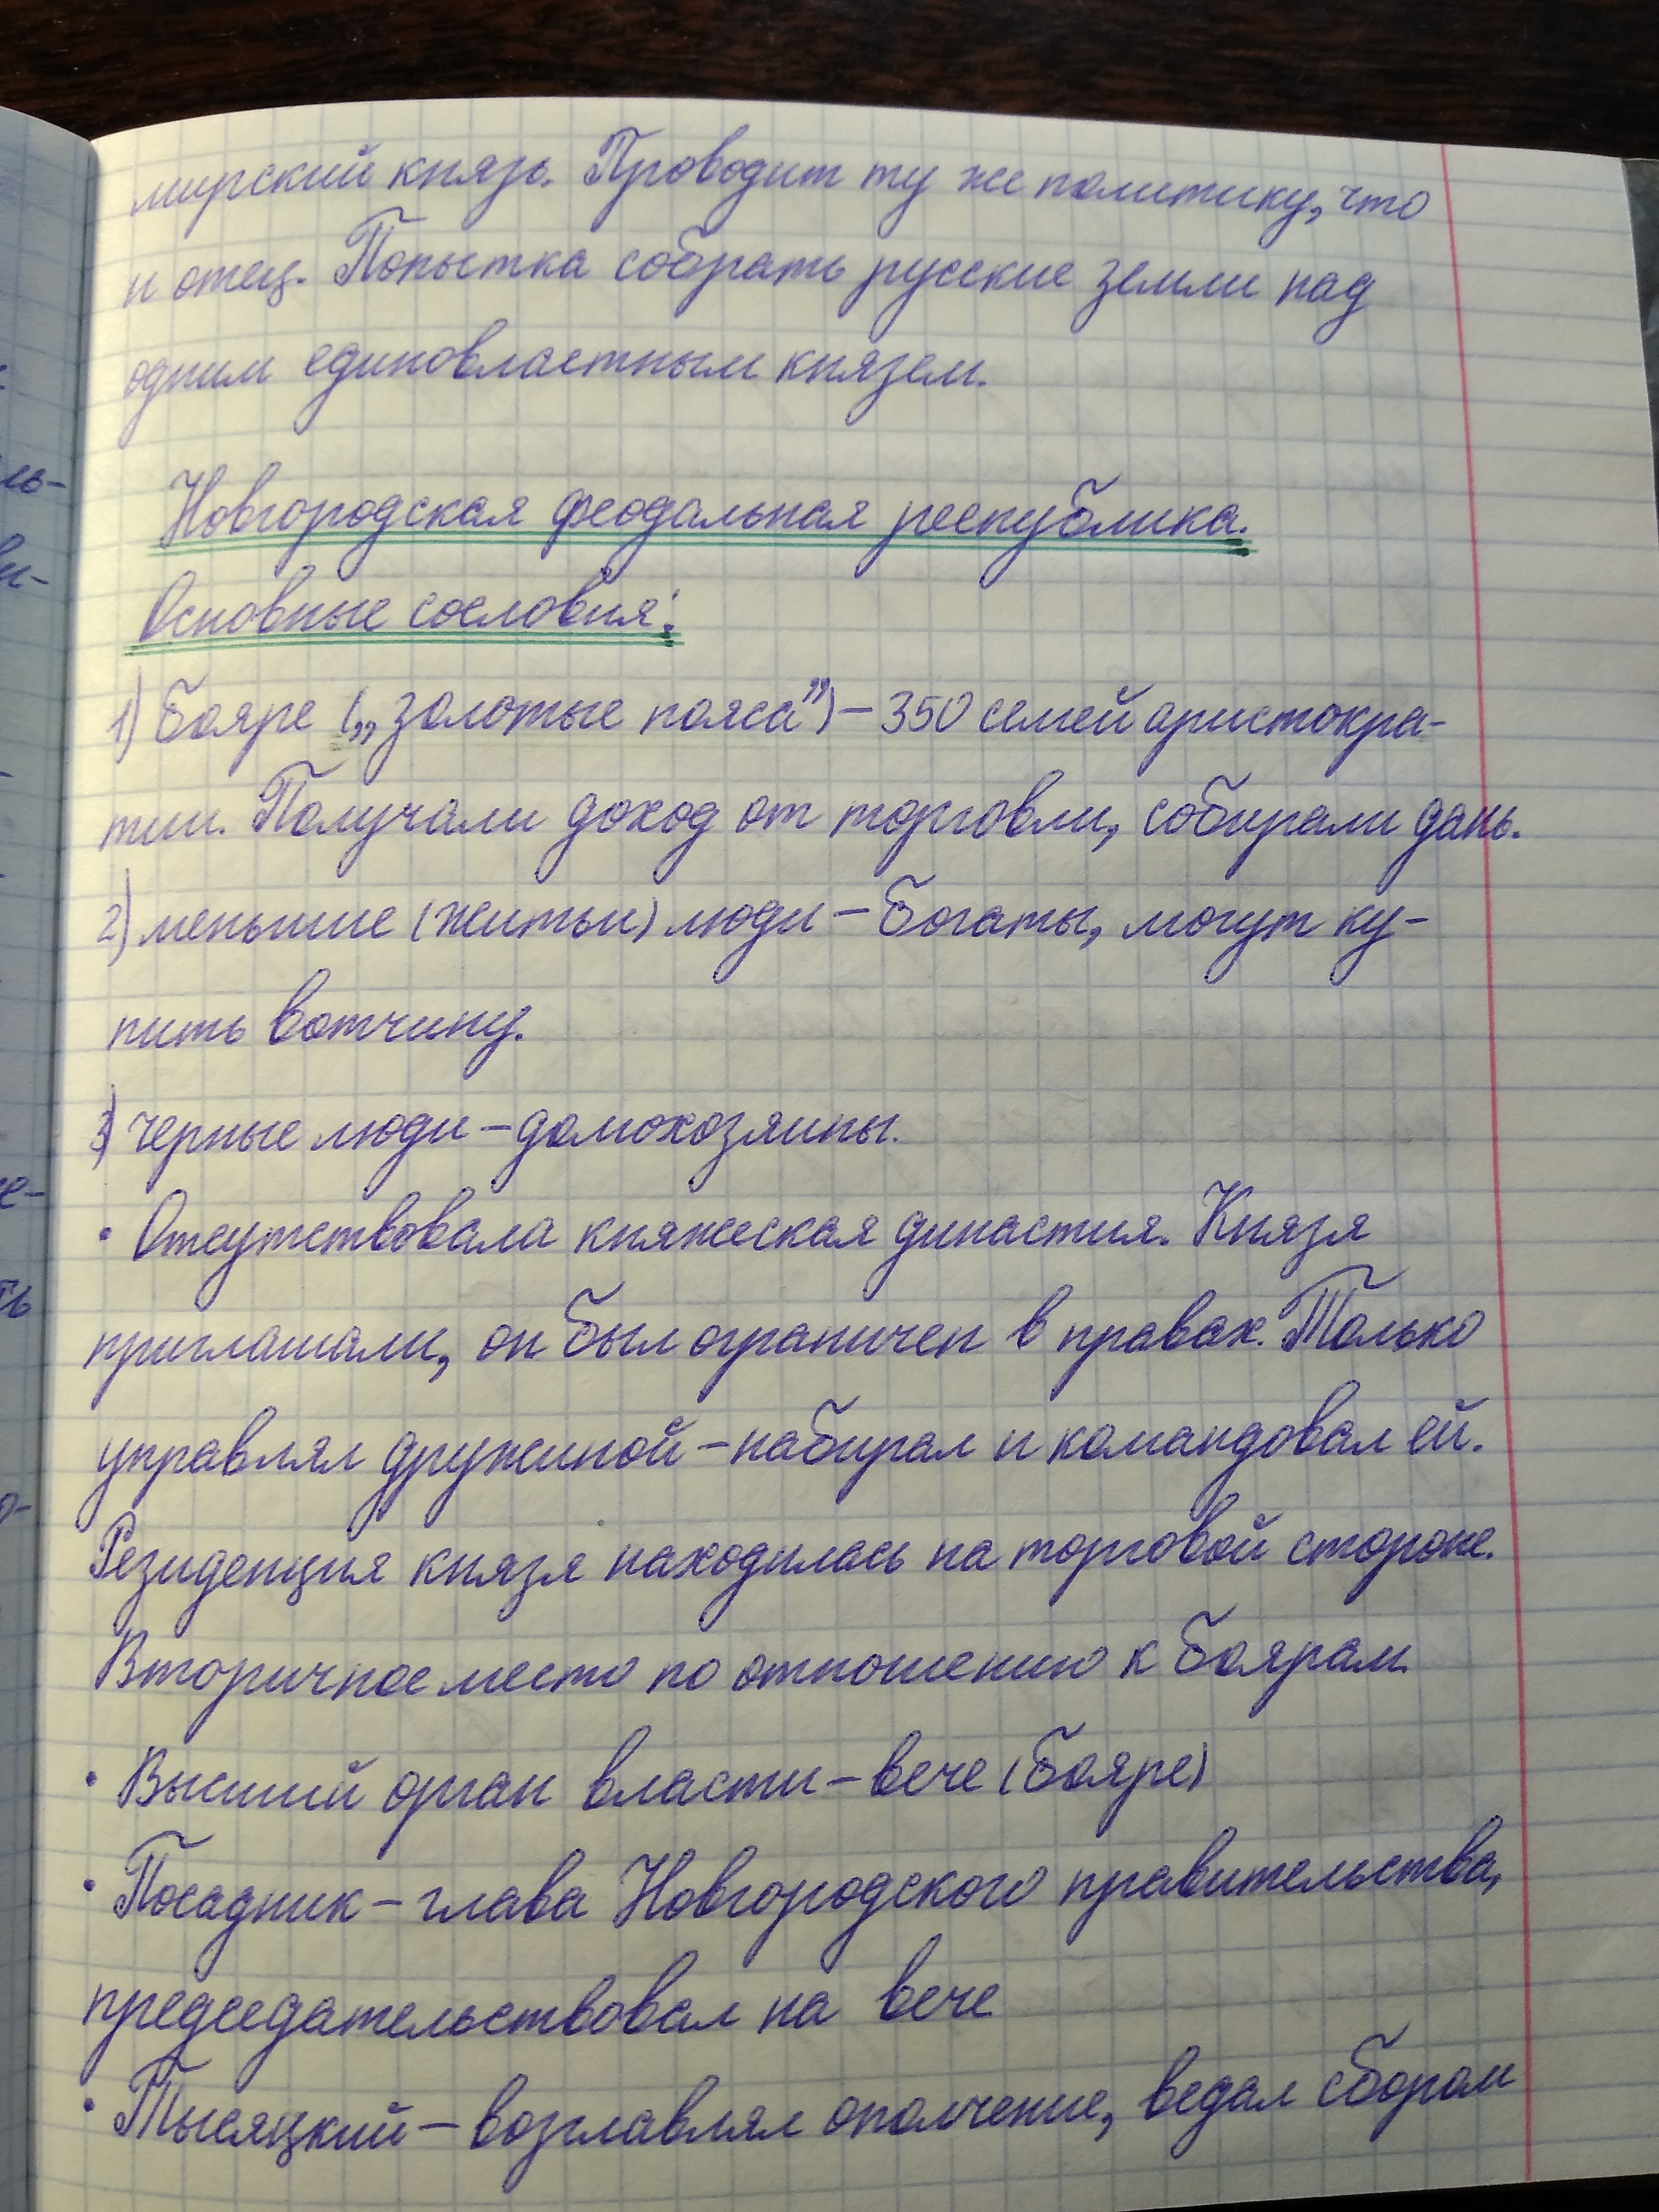 мирский князь. Проводит ту же политику, что
и отец. Попытка собрать русские земли над
одним единовластным князем.
Новгородская феодальная республика.
Основные сословия:
1) Бояре („золотые пояса”) – 350 семей аристокра-
тии. Получали доход от торговли, собирали дань.
2) меньшие (житьи) люди – богаты, могут ку-
пить вотчину.
3) черные люди – домохозяины.
• Отсутствовала княжеская династия. Князя
приглашали, он был ограничен в правах. Только
управлял дружиной – набирал и командовал ей.
Резиденция князя находилась на торговой стороне.
Вторичное место по отношению к боярам.
• Высший орган власти – вече (бояре)
• Посадник – глава Новгородского правительства,
председательствовал на вече
• Тысяцкий – возглавлял ополчение, ведал сбором